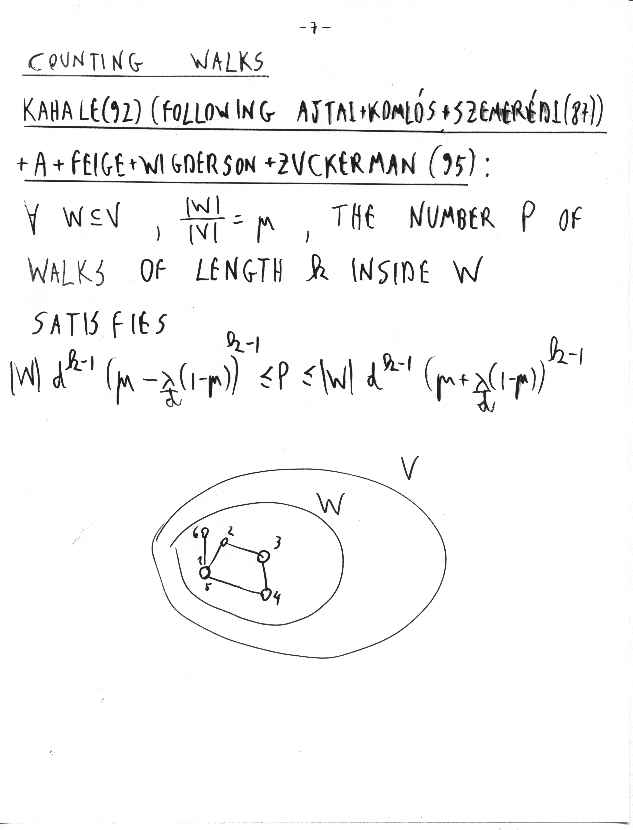 -7-
COUNTING WALKS
KAHALE(92) (FOLLOWING AJTAI+KOMLÓS+SZEMERÉDI(87))
+A+FEIGE+WIGDERSON+ZUCKERMAN (95):
∀ W⊆V, |W|/|V| = μ, THE NUMBER P OF
WALKS OF LENGTH k INSIDE W
SATISFIES
|W| d^{k-1} (μ - λ/d (1-μ))^{k-1} ≤ P ≤ |W| d^{k-1} (μ + λ/d (1-μ))^{k-1}
V
W
6 2
3
1
5
4